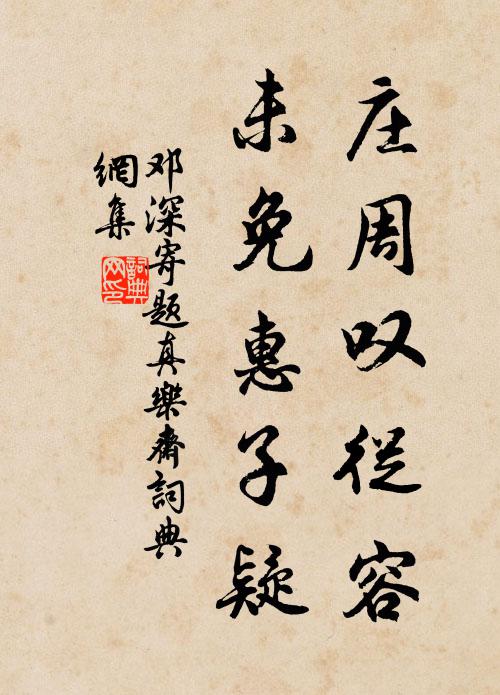 庄周叹従容
未免惠子疑
邓深寄题真樂齋詞典
網集
詞典
网印